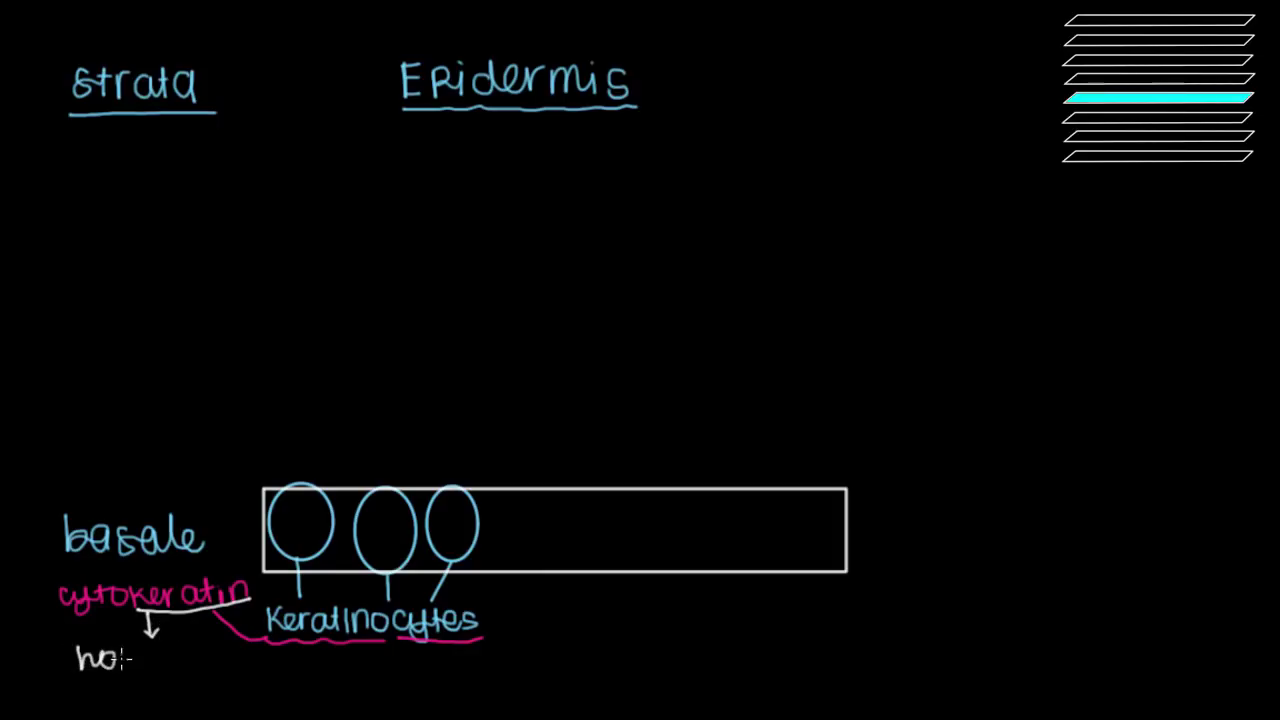 strata Epidermis
basale
cytokeratin
Keratinocytes
ho